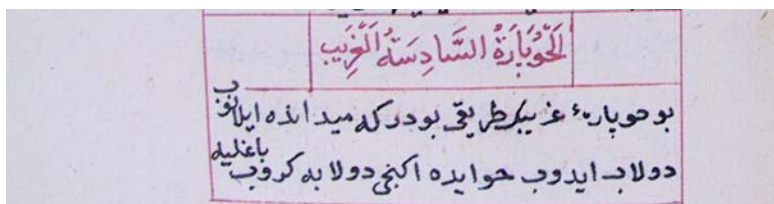 اَلْحُوبَارَةُ السَّادِسَةُ الْغَرِيب
بو حوپارهٔ غريبك طريقى بودر كه ميدانده ايلانوب
دولاب ايدوب حوايده اكنجى دولابه كروب باغليه